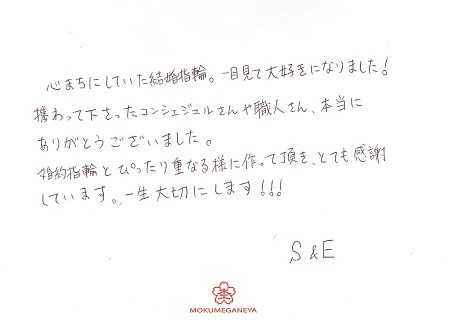 心まちにしていた結婚指輪。一目見て大好きになりました!
携わって下さったコンシェジェルさんや職人さん、本当に
ありがとうございました。
婚約指輪とぴったり重なる様に作って頂き、とても感謝
しています。一生大切にします!!!
S & E
MOKUMEGANEYA